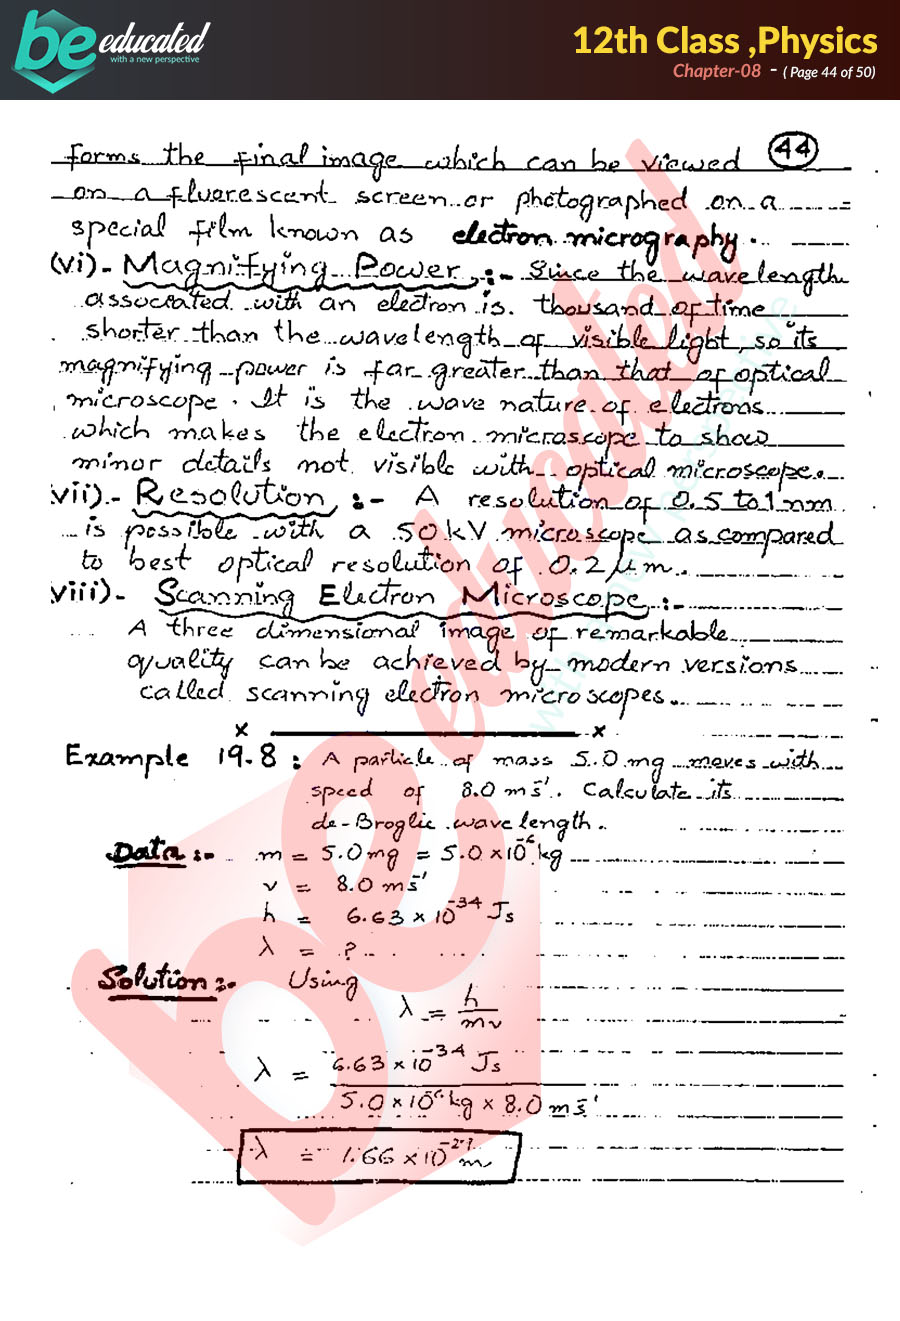 be educated
with a new perspective
12th Class ,Physics
Chapter-08 - ( Page 44 of 50)
44
forms the final image which can be viewed
on a fluorescent screen or photographed on a
special film known as electron micrography.
(vi)- Magnifying Power :- Since the wavelength
associated with an electron is thousand of time
shorter than the wavelength of visible light, so its
magnifying power is far greater than that of optical
microscope. It is the wave nature of electrons
which makes the electron microscope to show
minor details not visible with optical microscope.
vii)- Resolution :- A resolution of 0.5 to 1 nm
is possible with a 50 kV microscope as compared
to best optical resolution of 0.2 μm.
viii)- Scanning Electron Microscope :-
A three dimensional image of remarkable
quality can be achieved by modern versions
called scanning electron microscopes.
x x
Example 19.8 : A particle of mass 5.0 mg moves with
speed of 8.0 ms⁻¹. Calculate its
de-Broglie wavelength.
Data :- m = 5.0 mg = 5.0 × 10⁻⁶ kg
v = 8.0 ms⁻¹
h = 6.63 × 10⁻³⁴ Js
λ = ?
Solution :- Using
λ = h / mv
λ = 6.63 × 10⁻³⁴ Js
5.0 × 10⁻⁶ kg × 8.0 ms⁻¹
λ = 1.66 × 10⁻²⁹ m
be educated
with a new perspective